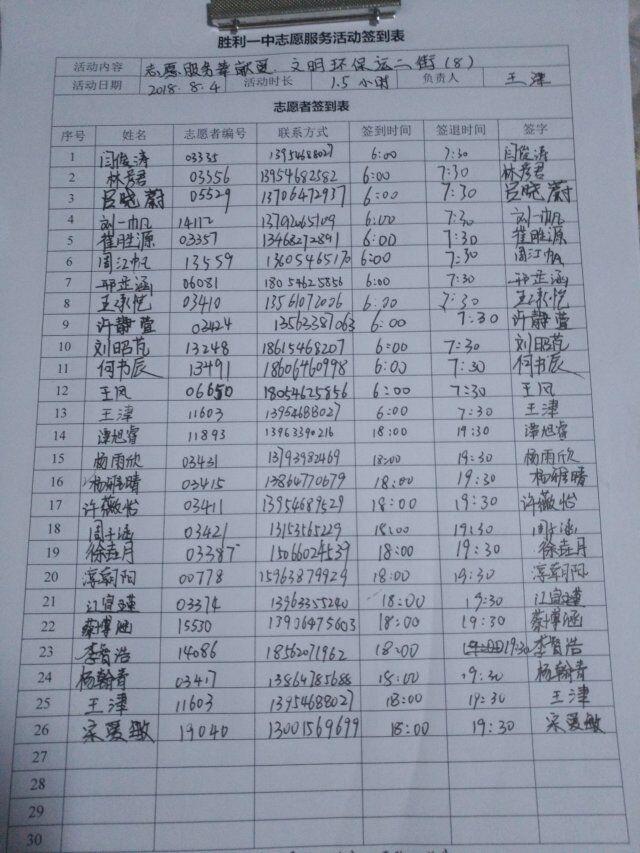 胜利一中志愿服务活动签到表
活动内容 志愿服务奉献更 文明环保运二街(8)
活动日期 2018.8.4 活动时长 1.5小时 负责人 王津
志愿者签到表
序号 姓名 志愿者编号 联系方式 签到时间 签退时间 签字
1 闫俊涛 03335 13954688027 6:00 7:30 闫俊涛
2 林秀君 03556 13954682582 6:00 7:30 林秀君
3 吕晓蔚 05529 13706472937 6:00 7:30 吕晓蔚
4 刘一帆 14112 13792065109 6:00 7:30 刘一帆
5 崔胜源 03357 13468272891 6:00 7:30 崔胜源
6 周江帆 13559 13605465170 6:00 7:30 周江帆
7 邢芷涵 06081 18054625856 6:00 7:30 邢芷涵
8 王承恺 03410 13561072026 6:00 7:30 王承恺
9 许静萱 02424 13562387063 6:00 7:30 许静萱
10 刘昭芃 13248 18615468207 6:00 7:30 刘昭芃
11 何书辰 13491 18606460998 6:00 7:30 何书辰
12 王凤 06650 18054625856 6:00 7:30 王凤
13 王津 11603 13954688027 6:00 7:30 王津
14 谭旭睿 11893 13963390216 18:00 19:30 谭旭睿
15 杨雨欣 03431 13793982469 18:00 19:30 杨雨欣
16 杨稀晴 03415 13864770679 18:00 19:30 杨稀晴
17 许薇怡 03411 13954689529 18:00 19:30 许薇怡
18 周子涵 03421 13153565229 18:00 19:30 周子涵
19 徐垚月 03387 15066024539 18:00 19:30 徐垚月
20 淳朝阳 00778 15963879929 18:00 19:30 淳朝阳
21 江宜瑾 03374 13963355240 18:00 19:30 江宜瑾
22 蔡博涵 15530 13906475603 18:00 19:30 蔡博涵
23 李晋浩 14086 18562071962 18:00 19:30 李晋浩
24 杨翰青 03417 13864785688 18:00 19:30 杨翰青
25 王津 11603 13954688027 18:00 19:30 王津
26 宋爱敏 19040 13001569699 18:00 19:30 宋爱敏
27
28
29
30